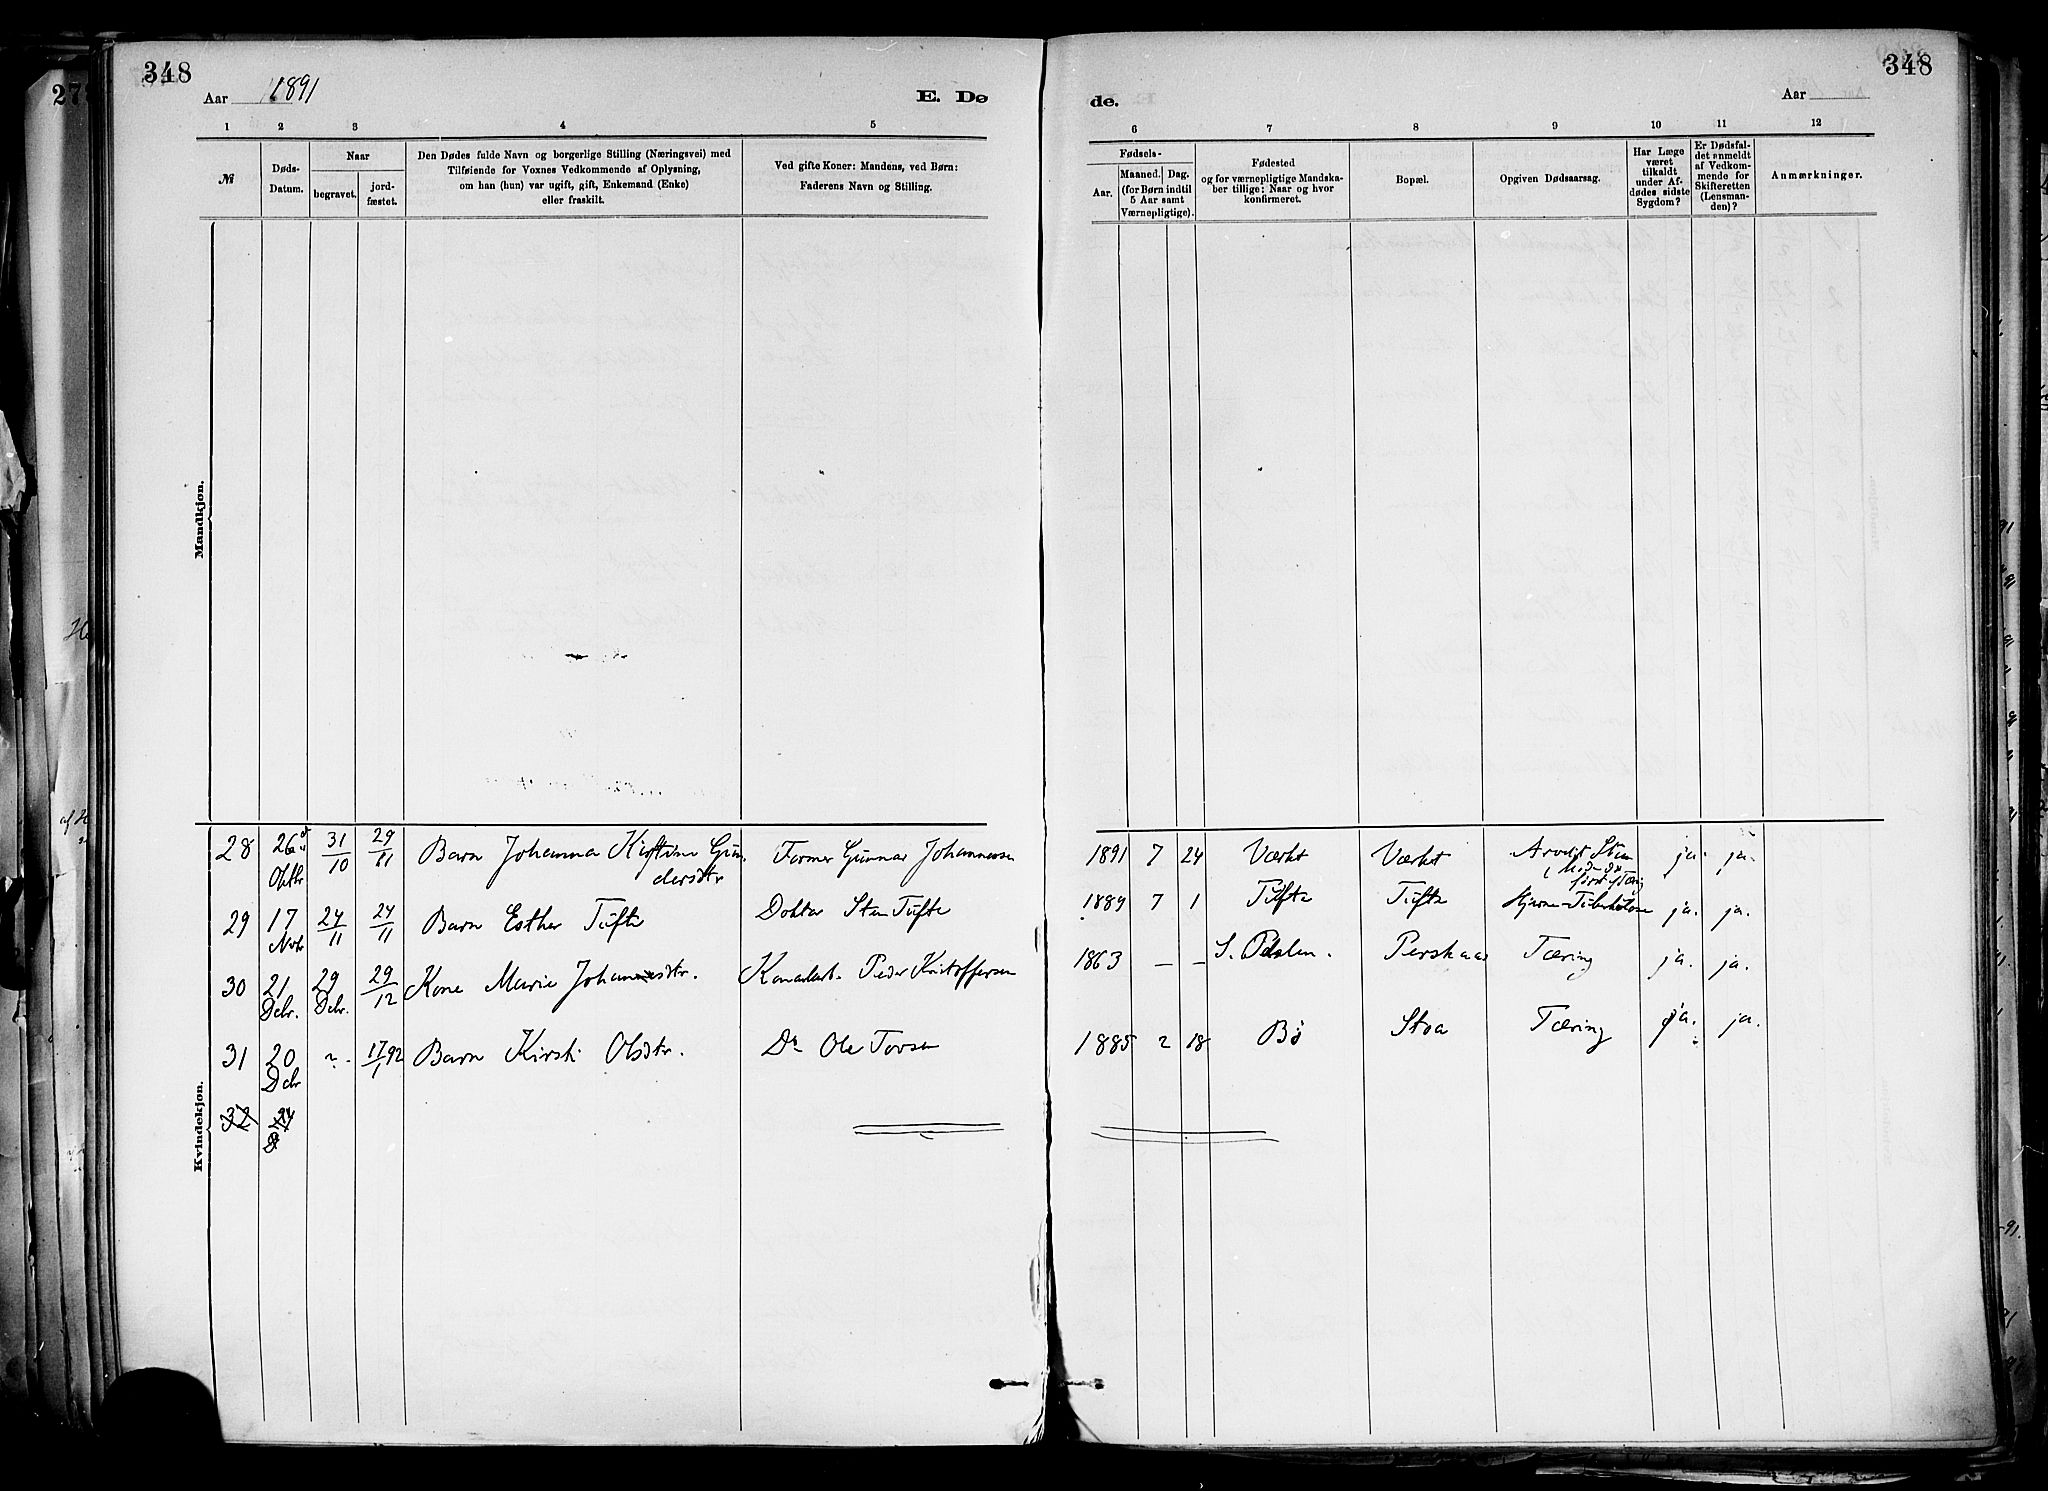 348
Aar 1891
E. Dø
de.
Aar
348
1 2 3 4 5 6 7 8 9 10 11 12
№
Døds-
Datum.
Naar
begravet.
jord-
fæstet.
Den Dødes fulde Navn og borgerlige Stilling (Næringsvei) med
Tilføiende for Voxnes Vedkommende af Oplysning,
om han (hun) var ugift, gift, Enkemand (Enke)
eller fraskilt.
Ved gifte Koner: Mandens, ved Børn:
Faderens Navn og Stilling.
Fødsels-
Aar.
Maaned. Dag.
(for Børn indtil
5 Aar samt
Værnepligtige).
Fødested
og for værnepligtige Mandska-
ber tillige: Naar og hvor
konfirmeret.
Bopæl.
Opgiven Dødsaarsag.
Har Læge
været
tilkaldt
under Af-
dødes sidste
Sygdom?
Er Dødsfal-
det anmeldt
af Vedkom-
mende for
Skifteretten
(Lensman-
den)?
Anmærkninger.
Mandkjøn.
Kvindekjøn.
28 26 Oktbr 31/10 29/11 Barn Johanna Kirstine Gun-
dersdtr
Former Gunnar Johannesen 1891 7 24 Værket Værket ja. ja.
29 17 Novbr 24/11 24/11 Barn Esther Tufte Doktor Sten Tufte 1889 7 1 Tufte Tufte Hjerne-Tuberkulose ja. ja.
30 21 Debr. 29 Debr. 29/12 Kone Marie Johannesdtr. Kanalarb. Peder Kristoffersen 1863 — — Pershaas Tæring ja. ja.
31 20 Debr ? 17/1 92 Barn Kirsti Olsdtr. Ole Tovsen 1885 2 18 Bø Stoa Tæring ja. ja.
32 24 D